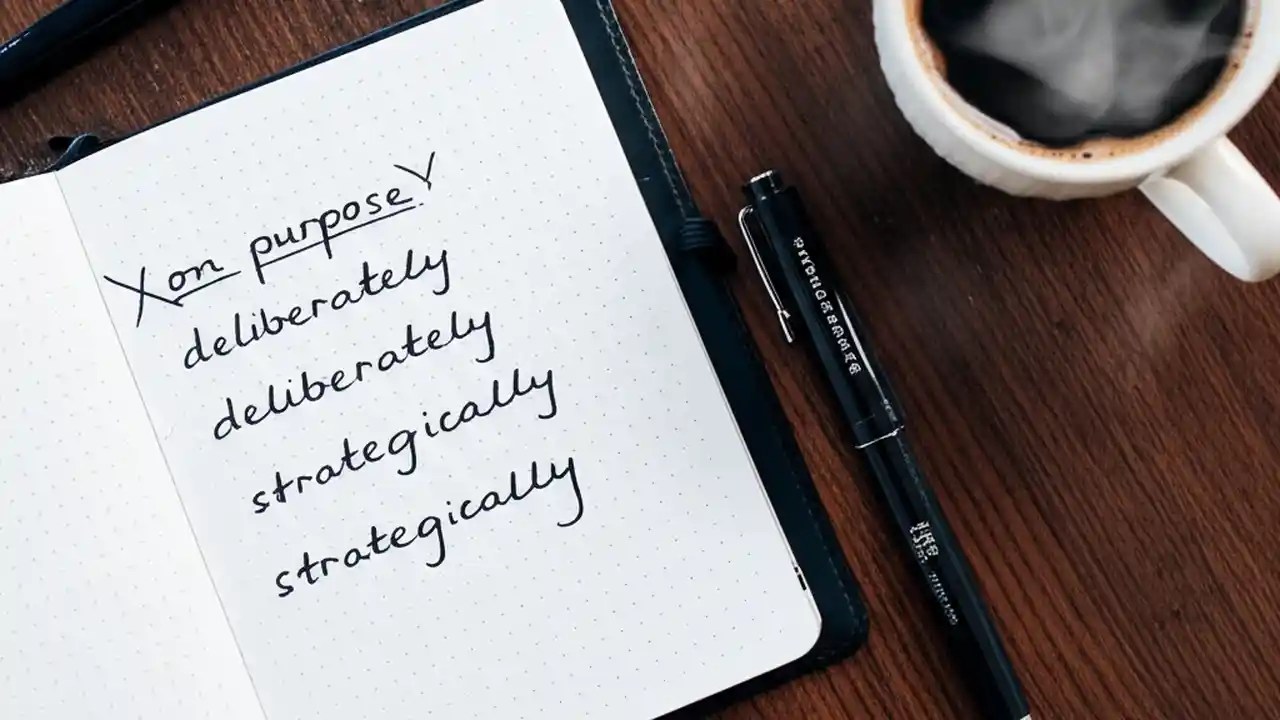 on purpose
deliberately
deliberately
strategically
strategically